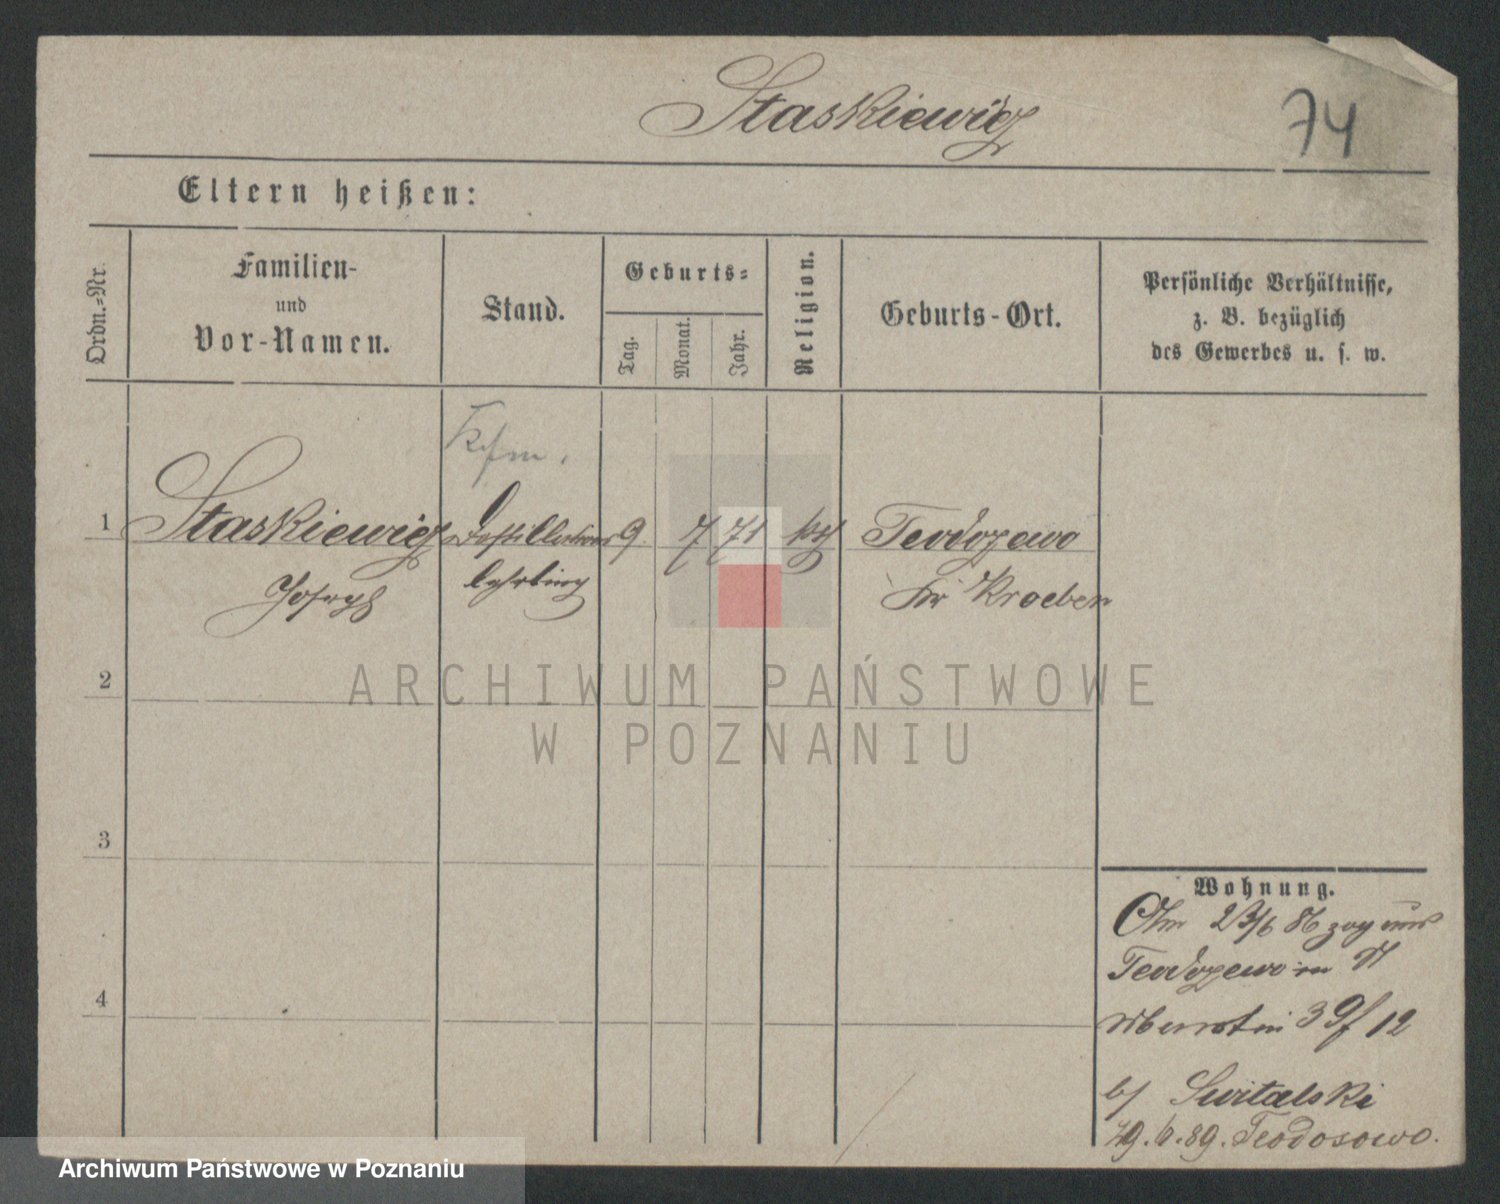 Staskiewicz
74
Eltern heißen:
Ordn.-Nr.
Familien-
und
Vor-Namen.
Stand.
Geburts-
Tag.
Monat.
Jahr.
Religion.
Geburts-Ort.
Persönliche Verhältnisse,
z. B. bezüglich
des Gewerbes u. s. w.
Kfm.
1
Staskiewicz
Joseph
Destillateur
lehrling
9. 7 71 kth
Teodozewo
Kr Kroeben
2
3
4
Wohnung.
Am 23/6 86 zog von
Teodozewo in
39/12
b/ Switalski
19.6.89. Teodosowo.
ARCHIWUM PAŃSTWOWE
W POZNANIU
Archiwum Państwowe w Poznaniu